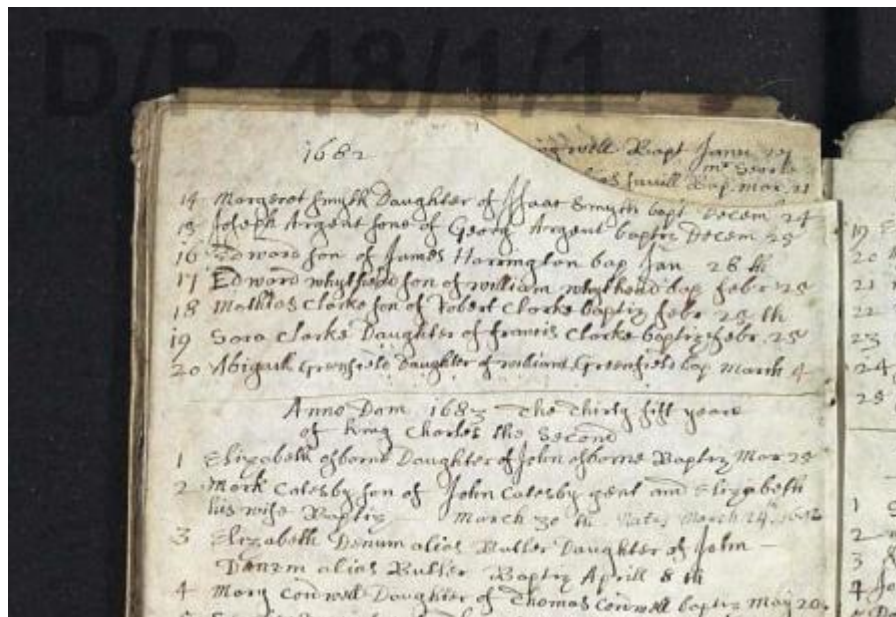 D/P 48/1/1
1682
well Bapt Janu 27
Bap. mar. 21
14 Margeret Smyth Daughter of Isaac Smyth bapt Decem 24
15 Joseph Argent sone of Georg Argent baptiz Decem 25
16 Edward son of James Harrington bap Jan 28 th
17 Edward whythead son of william whythead bap febr 25
18 Mathias Clarke son of Robert Clarke baptiz febr 25 th
19 Sara Clarke Daughter of francis Clarke baptiz febr. 25
20 Abigaell Greenfield Daughter of william Greenfield bap March 4
Anno Dom 1683 The Thirty fift yeare
of King Charles the Second
1 Elizabeth osborne Daughter of John osborne Baptiz Mar 25
2 Mark Catesby son of John Catesby gent and Elizabeth
his wife Baptiz March 30 th Natus March 24th 1682
3 Elizabeth Denum alias Butler Daughter of John
Denum alias Butler Baptiz Aprill 8 th
4 Mary Conwell Daughter of Thomas Conwell baptiz May 20
19
20
21
22
23
24
25
1
2
3
4 Jo